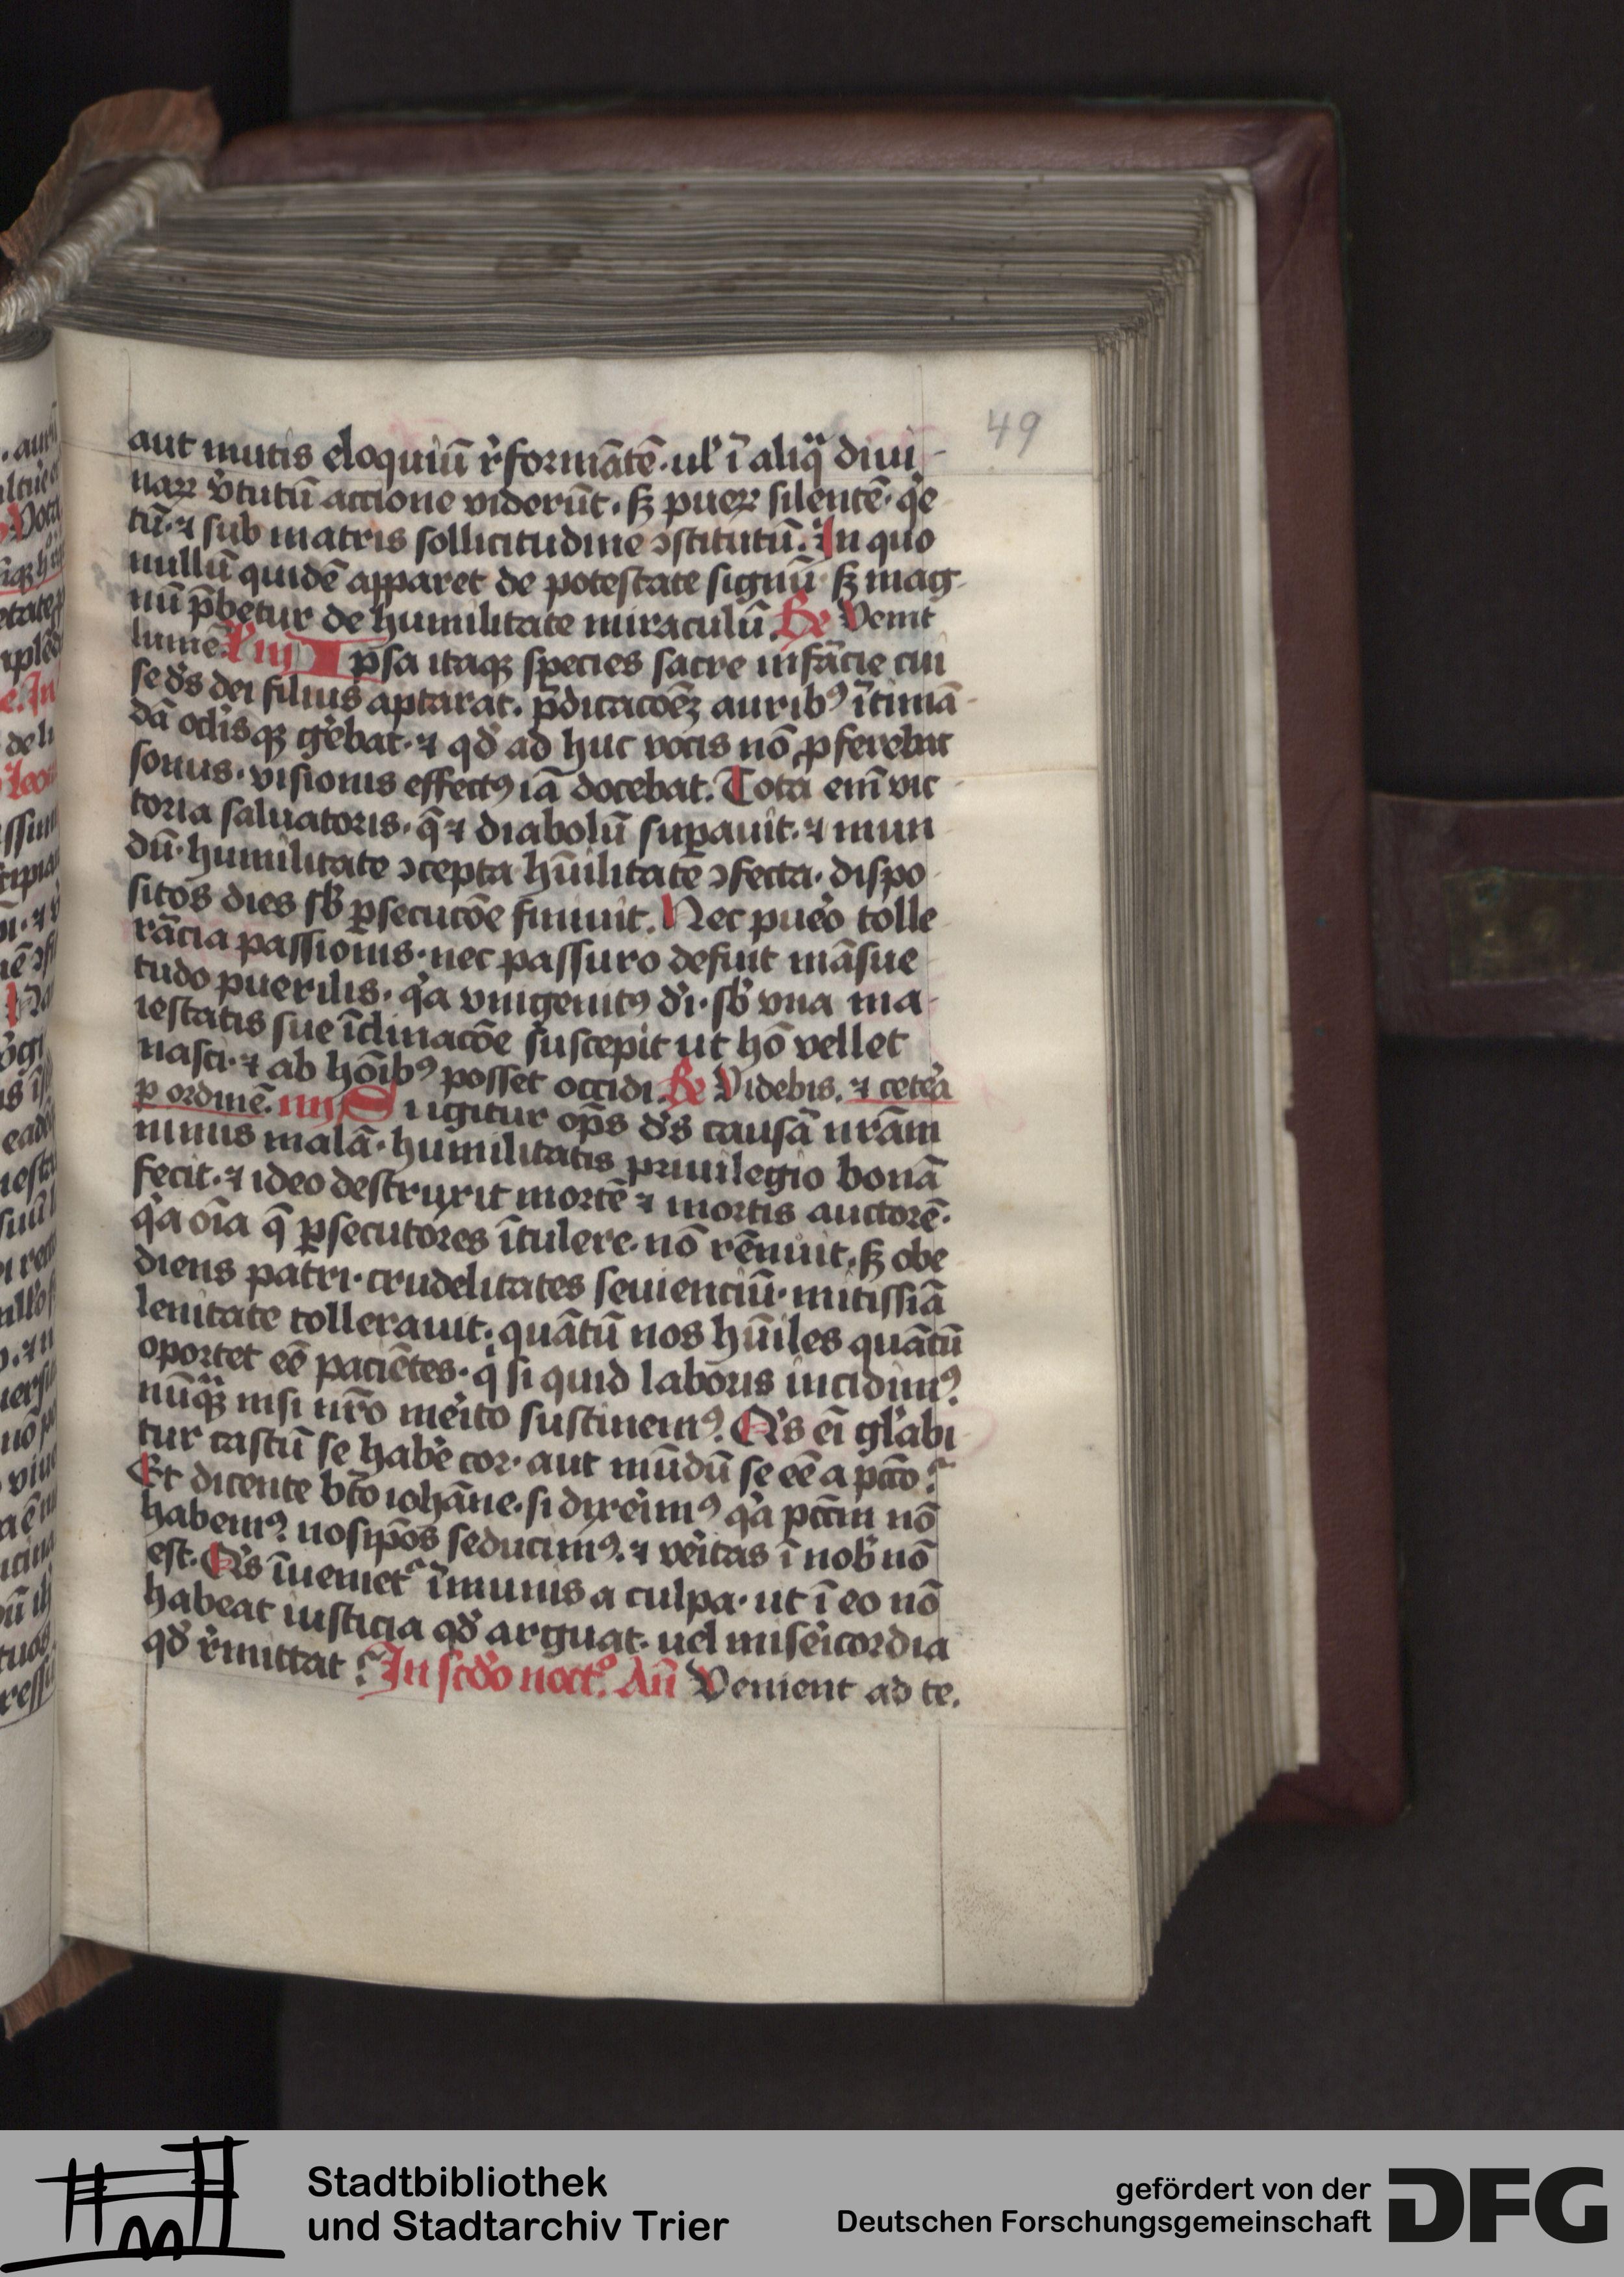 49
aut mutis eloquiū r̓formātē · ul̓ ī aliqͣ diui
naꝝ v̓tutū accione viderūt · sꝫ pueꝝ silentē · qͥe
tū · ⁊ sub matris sollicitudine ꝯstitutū. In quo
nullū quidē apparet de potestate signū · sꝫ mag
nū p̄betur de humilitate miraculū. Re Venit
lumē. L̓ iij Ipsa itaqꝫ species sacre infācie cui
se d̓s dei filius aptarat. p̄dicacōeꝫ auribꝰ ītimā
dā oc̓lisqꝫ gͤebat · ⁊ qd̓ ad huc vocis nō ꝓferebat
sonus · visionis effectꝰ iā docebat. Tota eīn vic
toria saluatoris · q̄ ⁊ diabolū suꝑauit · ⁊ mun
dū · humilitate ꝯcepta hūilitate ꝯfecta · dispo
sitos dies sb̓ ꝑsecucōe finiuit. Nec pueͦo tolle
rācia passionis · nec passuro defuit māsue
tudo puerilis · qͥa vnigenitꝰ d̓i · sb̓ vna ma
iestatis sue īclinacōe suscepit ut hō vellet
nasci · ⁊ ab hōibꝰ posset occidi. Re Videbis. ⁊ cete̓a
ꝑ ordinē. iiij Si igitur op̄s d̓s causā nr̄am
nimis malā · humilitatis priuilegio bonā
fecit · ⁊ ideo destruxit mortē ⁊ mortis auctorē ·
qͥa oīa q̄ ꝑsecutores ītulere · nō rēnuit · sꝫ obe
diens patri · crudelitates seuienciū · mitissiā
lenitate tollerauit · quātū nos hūiles quātū
oportet eē paciētes · qͥ si quid laboris incidimꝰ
nūqͣꝫ nisi nr̄o me̓ito sustinemꝰ. Qͥs eī gl̓abi
tur castū se habe̓ cor · aut mūdū se eē a pctō?
Et dicente btō iohāne · si dixe̓imꝰ qͥa pctm̄ nō
habemꝰ nosip̄os seducimꝰ · ⁊ ve̓itas ī nob̓ nō
est. Qͥs īuenietᷣ īmunis a culpa · ut ī eo nō
habeat iusticia qd̓ arguat · uel mise̓icordia
qd̓ r̓mittat? In scd̓o noct̊. Añ Venient ad te.
Stadtbibliothek
und Stadtarchiv Trier
gefördert von der
Deutschen Forschungsgemeinschaft
DFG